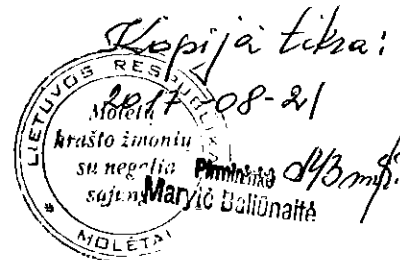 Kopija tikra:
2017-08-21
LIETUVOS RESPUBLIKA
Molėtų
krašto žmonių
su negalia
sąjunga
Pirmininkė
Marytė Baliūnaitė
* MOLĖTAI